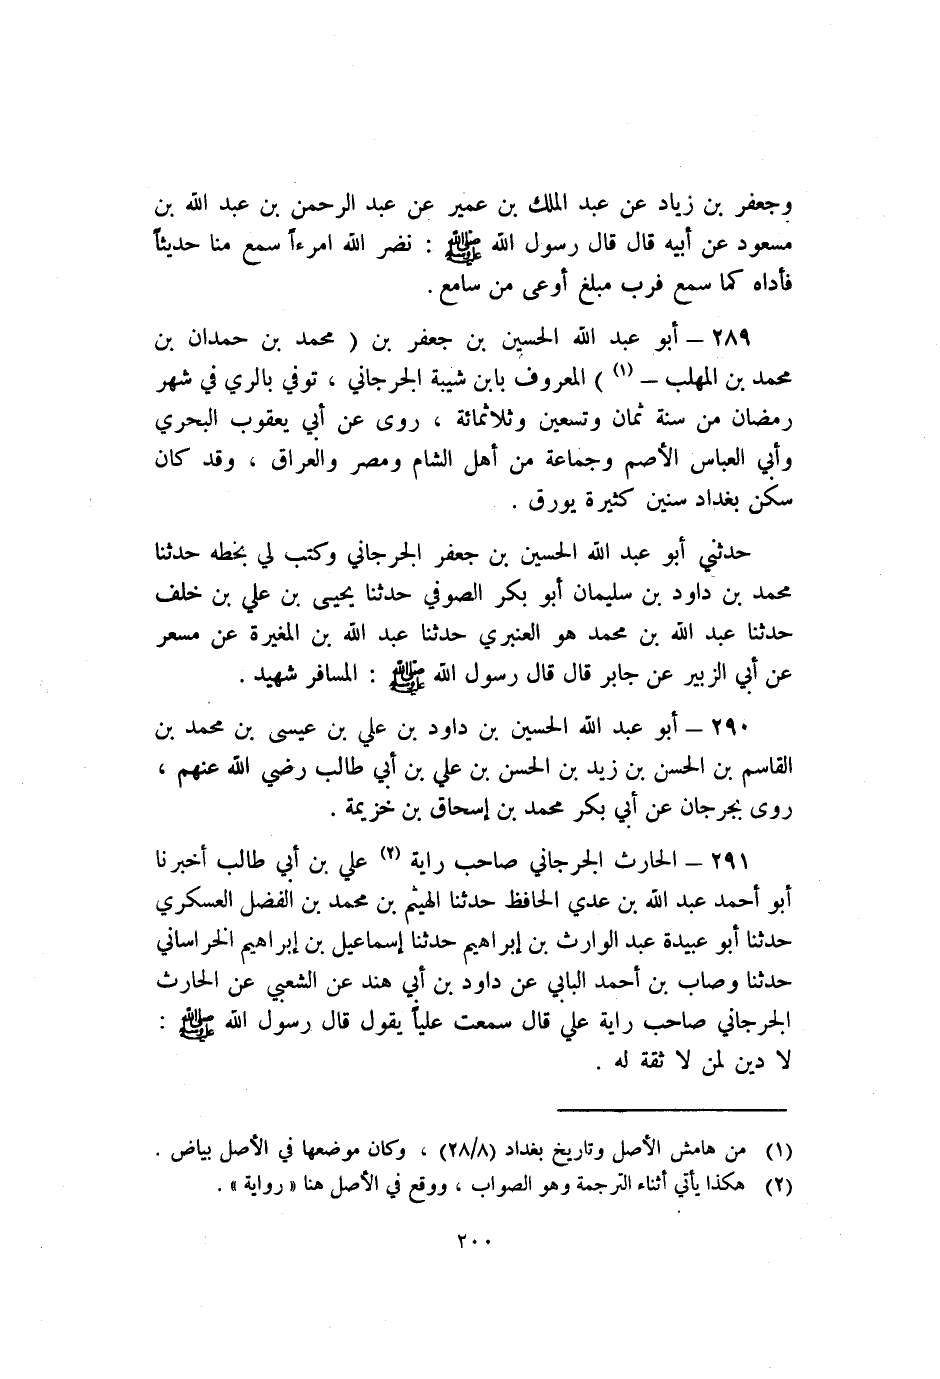 وجعفر بن زياد عن عبد الملك بن عمير عن عبد الرحمن بن عبد الله بن
مسعود عن أبيه قال قال رسول الله ﷺ : نضر الله امرءاً سمع منا حديثاً
فأداه كما سمع فرب مبلغ أوعى من سامع .
٢٨٩ – أبو عبد الله الحسين بن جعفر بن ( محمد بن حمدان بن
محمد بن المهلب – (١) ) المعروف بابن شيبة الجرجاني ، توفي بالري في شهر
رمضان من سنة ثمان وتسعين وثلاثمائة ، روى عن أبي يعقوب البحري
وأبي العباس الأصم وجماعة من أهل الشام ومصر والعراق ، وقد كان
سكن بغداد سنين كثيرة يورق .
حدثني أبو عبد الله الحسين بن جعفر الجرجاني وكتب لي بخطه حدثنا
محمد بن داود بن سليمان أبو بكر الصوفي حدثنا يحيى بن علي بن خلف
حدثنا عبد الله بن محمد هو العنبري حدثنا عبد الله بن المغيرة عن مسعر
عن أبي الزبير عن جابر قال قال رسول الله ﷺ : المسافر شهيد .
٢٩٠ – أبو عبد الله الحسين بن داود بن علي بن عيسى بن محمد بن
القاسم بن الحسن بن زيد بن الحسن بن علي بن أبي طالب رضي الله عنهم ،
روى بجرجان عن أبي بكر محمد بن إسحاق بن خزيمة .
٢٩١ – الحارث الجرجاني صاحب راية (٢) علي بن أبي طالب أخبرنا
أبو أحمد عبد الله بن عدي الحافظ حدثنا الهيثم بن محمد بن الفضل العسكري
حدثنا أبو عبيدة عبد الوارث بن إبراهيم حدثنا إسماعيل بن إبراهيم الخراساني
حدثنا وصاب بن أحمد البابي عن داود بن أبي هند عن الشعبي عن الحارث
الجرجاني صاحب راية علي قال سمعت علياً يقول قال رسول الله ﷺ :
لا دين لمن لا ثقة له .
(١) من هامش الأصل وتاريخ بغداد (٢٨/٨) ، وكان موضعها في الأصل بياض .
(٢) هكذا يأتي أثناء الترجمة وهو الصواب ، ووقع في الأصل هنا « رواية » .
٢٠٠